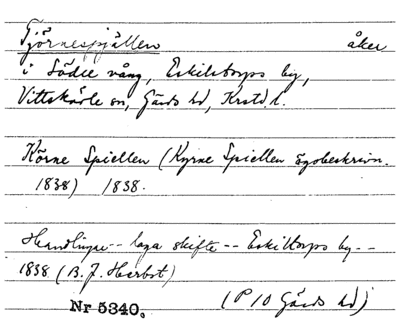 Tjörnespjällen åker
i Södre vång, Eskilstorps by,
Vittskövle sn, Gärds hd, Krstd l.
Körne Spiellen (Kyrne Spiellen ägobeskrivn.
1838) 1838.
Handlingar -- laga skifte -- Eskiltorps by --
1838 (B. J. Herbst)
Nr 5340. (P 10 Gärds hd)